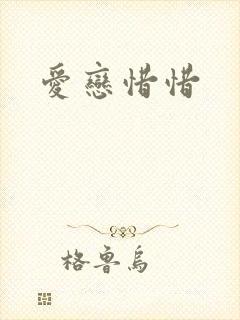 愛戀惜惜
格魯烏